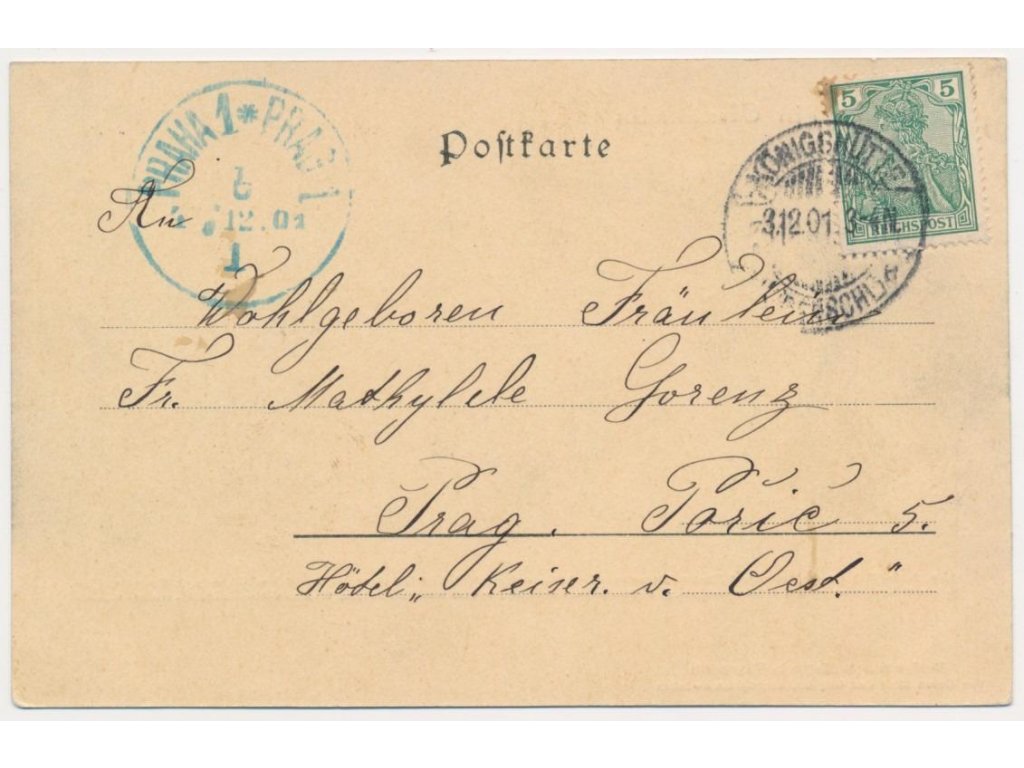 PRAHA 1 * PRAG 1
12.01
1
Postkarte
5 5
REICHSPOST
KÖNIGSHÜTTE
3.12.01. 3-4N.
An
Wohlgeboren Fräulein
Fr. Mathylde Gorenz
Prag. Pořič 5.
Hôtel „Keiser. v. Oest."